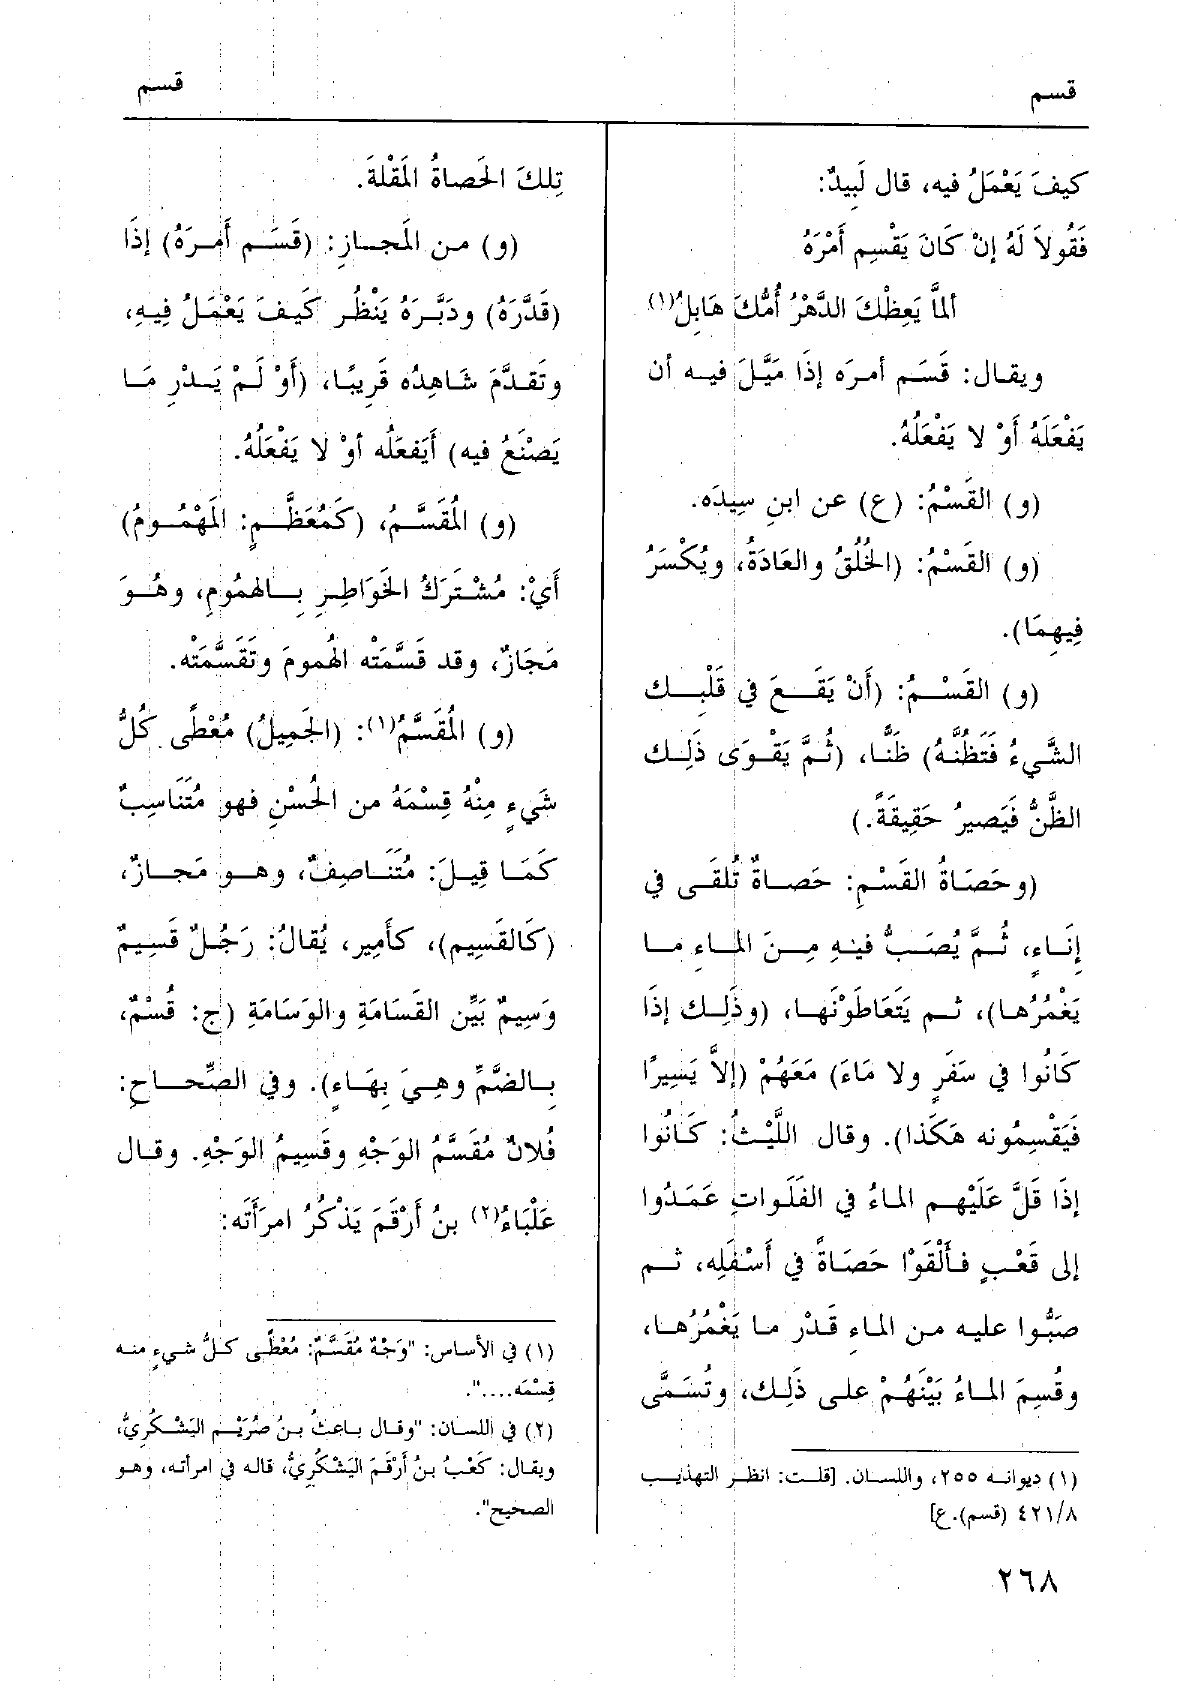 قسم
قسم
كيفَ يَعْمَلُ فيه، قال لَبِيدٌ:
فَقُولاَ لَهُ إنْ كَانَ يَقْسِم أَمْرَهُ
ألمَّا يَعِظْكَ الدَّهْرُ أُمُّكَ هَابِلُ(١)
ويقال: قَسَم أمرَه إذَا مَيَّلَ فيه أن
يَفْعَلَهُ أَوْ لا يَفْعَلُهُ.
(و) القَسْمُ: (ع) عن ابنِ سِيدَه.
(و) القَسْمُ: (الخُلُقُ والعَادَةُ، ويُكْسَرُ
فِيهِمَا).
(و) القَسْمُ: (أَنْ يَقَعَ في قَلْبِك
الشَّيءُ فَتَظُنَّهُ) ظَنًّا، (ثُمَّ يَقْوَى ذَلِك
الظَّنُّ فَيَصيرُ حَقِيقَةً.)
(وحَصَاةُ القَسْمِ: حَصاةٌ تُلقَى في
إِنَاءٍ، ثُمَّ يُصَبُّ فيهِ مِنَ الماءِ ما
يَغْمُرُها)، ثم يَتَعَاطَوْنَها، (وذَلِك إذَا
كَانُوا في سَفَرٍ ولا مَاءَ) مَعَهُمْ (إلاَّ يَسِيرًا
فَيَقْسِمُونه هَكَذا). وقال اللَّيْثُ: كَانُوا
إذَا قَلَّ عَلَيْهِم الماءُ في الفَلَواتِ عَمَدُوا
إلى قَعْبٍ فأَلْقَوْا حَصَاةً في أَسْفَلِه، ثم
صَبُّوا عليه من الماءِ قَدْر ما يَغْمُرُها،
وقُسِمَ الماءُ بَيْنَهُمْ على ذَلِك، وتُسَمَّى
(١) ديوانه ٢٥٥، واللسان. [قلت: انظر التهذيب
٤٢١/٨ (قسم).ع]
تِلكَ الحَصاةُ المَقْلةَ.
(و) من المَجازِ: (قَسَم أَمرَهُ) إذَا
(قَدَّرَهُ) ودَبَّرَهُ يَنْظُر كَيفَ يَعْمَلُ فِيهِ،
وتَقدَّمَ شَاهِدُه قَرِيبًا، (أَوْ لَمْ يَدْرِ مَا
يَصْنَعُ فيه) أَيَفعَلُه أوْ لا يَفْعَلُهُ.
(و) المُقَسَّمُ، (كَمُعَظَّمٍ: المَهْمُومُ)
أَيْ: مُشْتَرَكُ الخَوَاطِرِ بِالهمُومِ، وهُوَ
مَجَازٌ، وقد قَسَّمَتْه الهُمومَ وتَقَسَّمَتْه.
(و) المُقَسَّمُ(١): (الجَمِيلُ) مُعْطًى كُلُّ
شَيءٍ مِنْهُ قِسْمَهُ من الحُسْنِ فهو مُتَنَاسِبٌ
كَمَا قِيلَ: مُتَنَاصِفٌ، وهو مَجازٌ،
(كَالقَسِيم)، كأَمِير، يُقالُ: رَجُلٌ قَسِيمٌ
وَسِيمٌ بَيِّن القَسَامَةِ والوَسَامَةِ (ج: قُسْمٌ،
بِالضَّمِّ وهِيَ بِهَاءٍ). وفي الصِّحاحِ:
فُلانٌ مُقَسَّمُ الوَجْهِ وقَسِيمُ الوَجْهِ. وقال
عَلْبَاءُ(٢) بنُ أَرْقَمَ يَذْكُرُ امرَأَتَه:
(١) في الأساس: "وَجْهٌ مُقَسَّمٌ: مُعْطًى كلُّ شيءٍ منه
قِسْمَه....".
(٢) في اللسان: "وقال باعثُ بنُ صُرَيْم اليَشْكُرِيُّ،
ويقال: كَعْبُ بنُ أَرْقَمَ اليَشْكُرِيُّ، قاله في امرأته، وهو
الصحيح".
٢٦٨